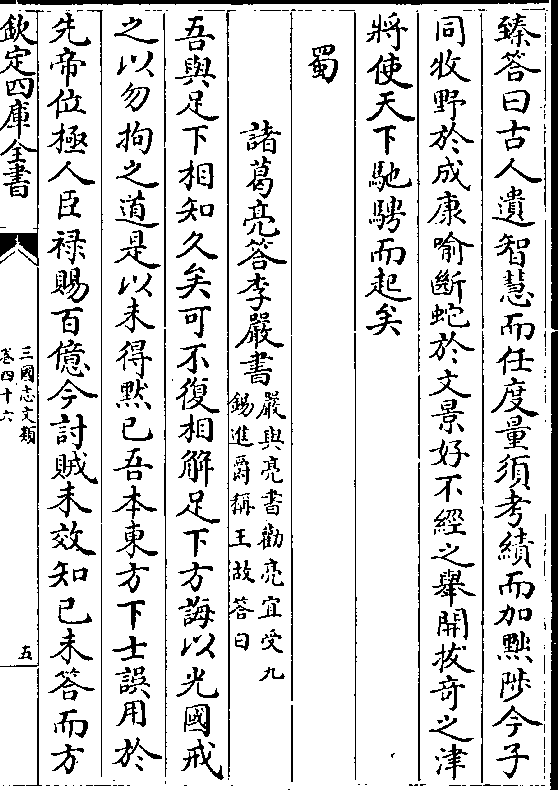 臻答曰古人遺智慧而任度量須考績而加黜陟今子
同牧野於成康喻斷蛇於文景好不經之舉開拔奇之津
將使天下馳騁而起矣
蜀
諸葛亮答李嚴書嚴與亮書勸亮宜受九
錫進爵稱王故答曰
吾與足下相知久矣可不復相解足下方誨以光國戒
之以勿拘之道是以未得黙已吾本東方下士誤用於
先帝位極人臣禄賜百億今討賊未效知己未答而方
欽定四庫全書
三國志文類
卷四十六
五